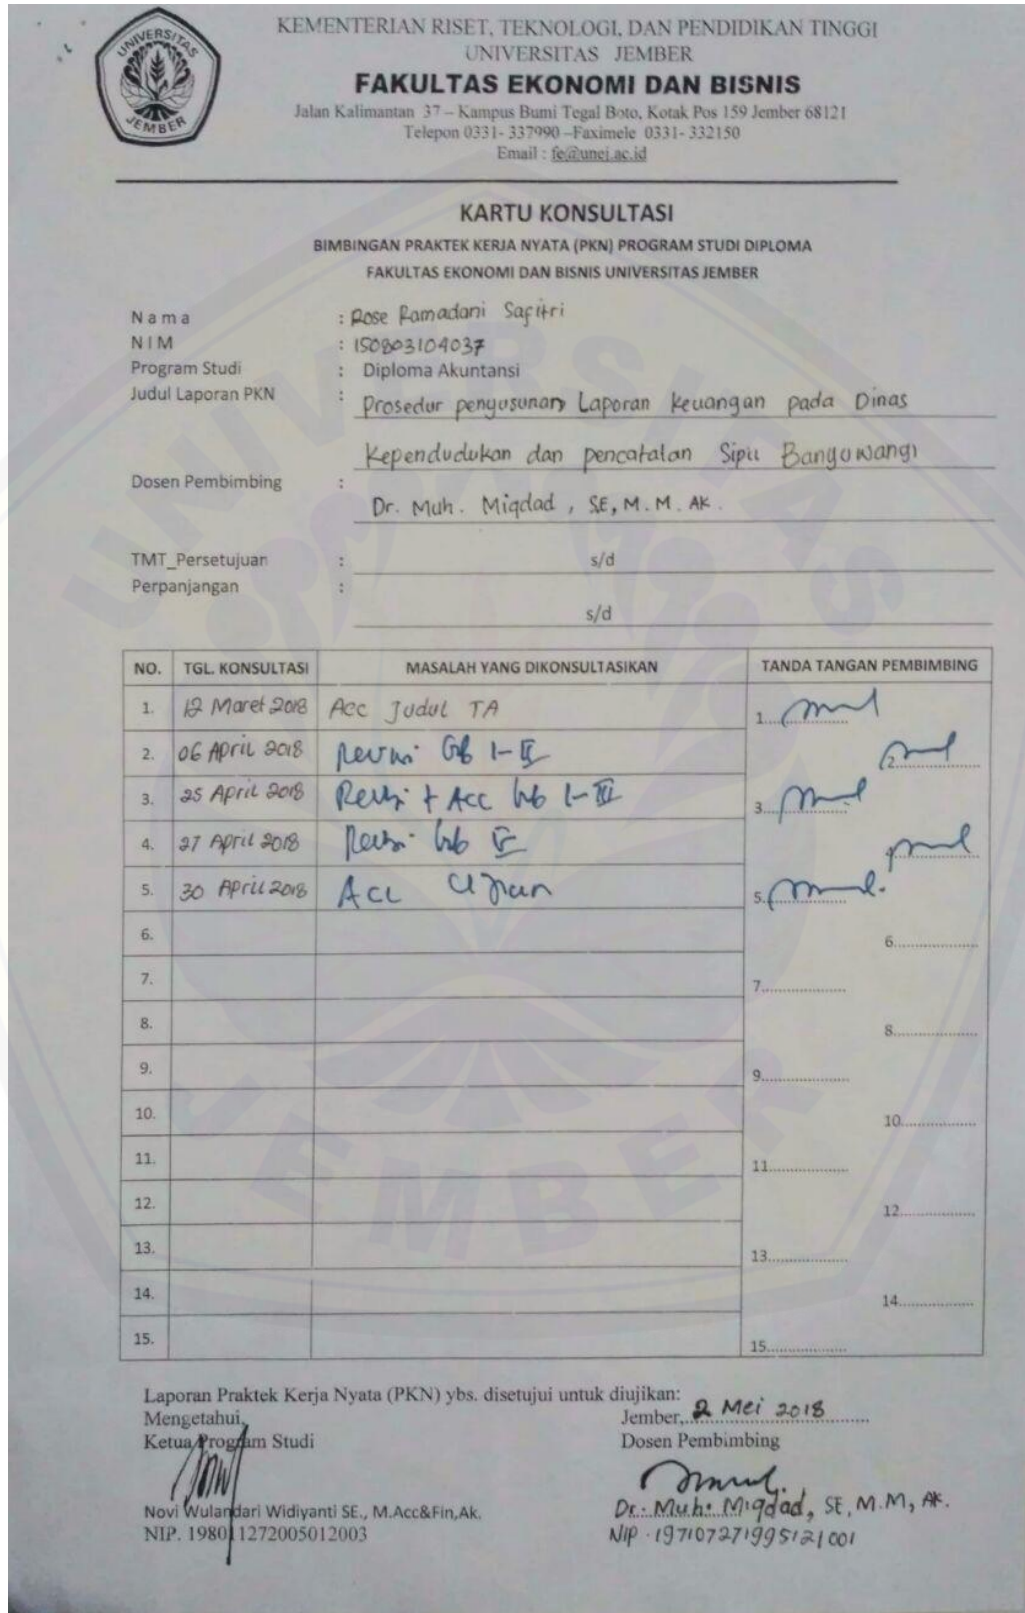 UNIVERSITAS
JEMBER
KEMENTERIAN RISET, TEKNOLOGI, DAN PENDIDIKAN TINGGI
UNIVERSITAS JEMBER
FAKULTAS EKONOMI DAN BISNIS
Jalan Kalimantan 37 – Kampus Bumi Tegal Boto, Kotak Pos 159 Jember 68121
Telepon 0331- 337990 –Faximele 0331- 332150
Email : fe@unej.ac.id
KARTU KONSULTASI
BIMBINGAN PRAKTEK KERJA NYATA (PKN) PROGRAM STUDI DIPLOMA
FAKULTAS EKONOMI DAN BISNIS UNIVERSITAS JEMBER
Nama : Rose Ramadani Safitri
NIM : 150803104037
Program Studi : Diploma Akuntansi
Judul Laporan PKN : Prosedur penyusunan Laporan Keuangan pada Dinas
Kependudukan dan pencatatan Sipil Banyuwangi
Dosen Pembimbing :
Dr. Muh. Miqdad, SE, M.M. AK.
TMT_Persetujuan : s/d
Perpanjangan :
s/d
NO. TGL. KONSULTASI MASALAH YANG DIKONSULTASIKAN TANDA TANGAN PEMBIMBING
1. 12 Maret 2018 Acc Judul TA 1.
2. 06 April 2018 Revisi bab I-II 2.
3. 25 April 2018 Revisi + Acc bab I-III 3.
4. 27 April 2018 Revisi bab 4.
5. 30 April 2018 Acc Ujian 5.
6. 6.
7. 7.
8. 8.
9. 9.
10. 10.
11. 11.
12. 12.
13. 13.
14. 14.
15. 15.
Laporan Praktek Kerja Nyata (PKN) ybs. disetujui untuk diujikan:
Mengetahui, Jember, 2 Mei 2018
Ketua Program Studi Dosen Pembimbing
Novi Wulandari Widiyanti SE., M.Acc&Fin,Ak. Dr. Muh. Miqdad, SE, M.M, AK.
NIP. 198011272005012003 NIP. 197107271995121001
UNIVERSITAS
JEMBER